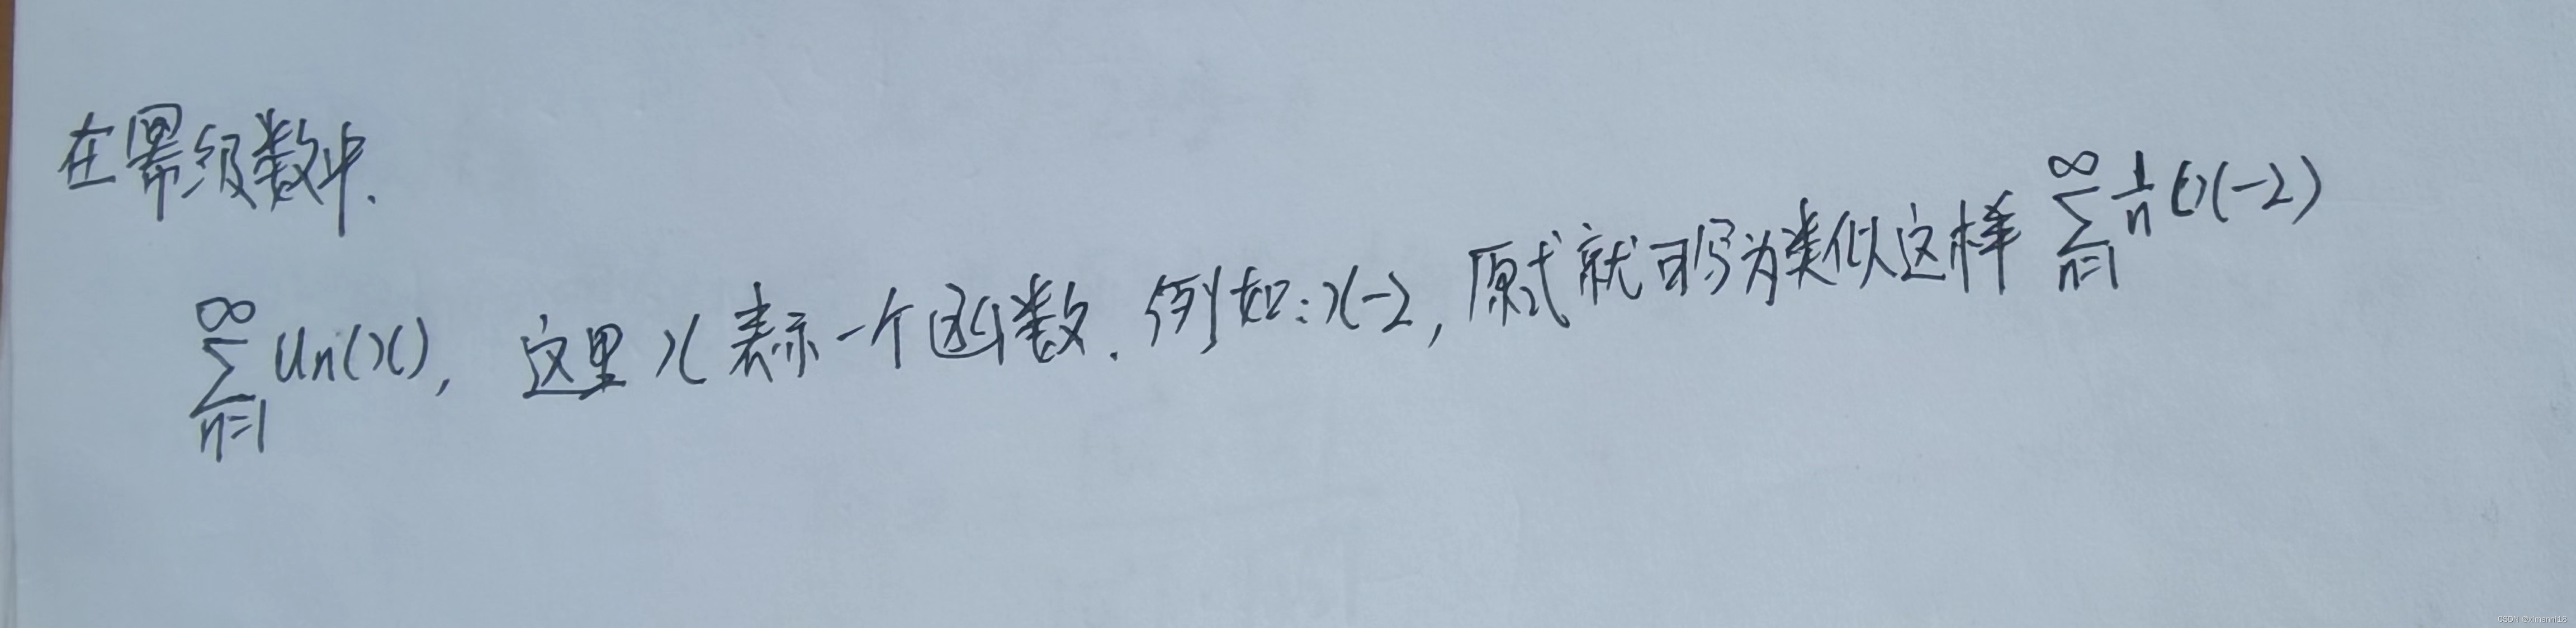 在幂级数中.
∞∑n=1 Un(x), 这里x表示一个函数. 例如:x-2, 原式就可写为类似这样 ∞∑n=1 1/n (x-2)
CSDN @ximanni18